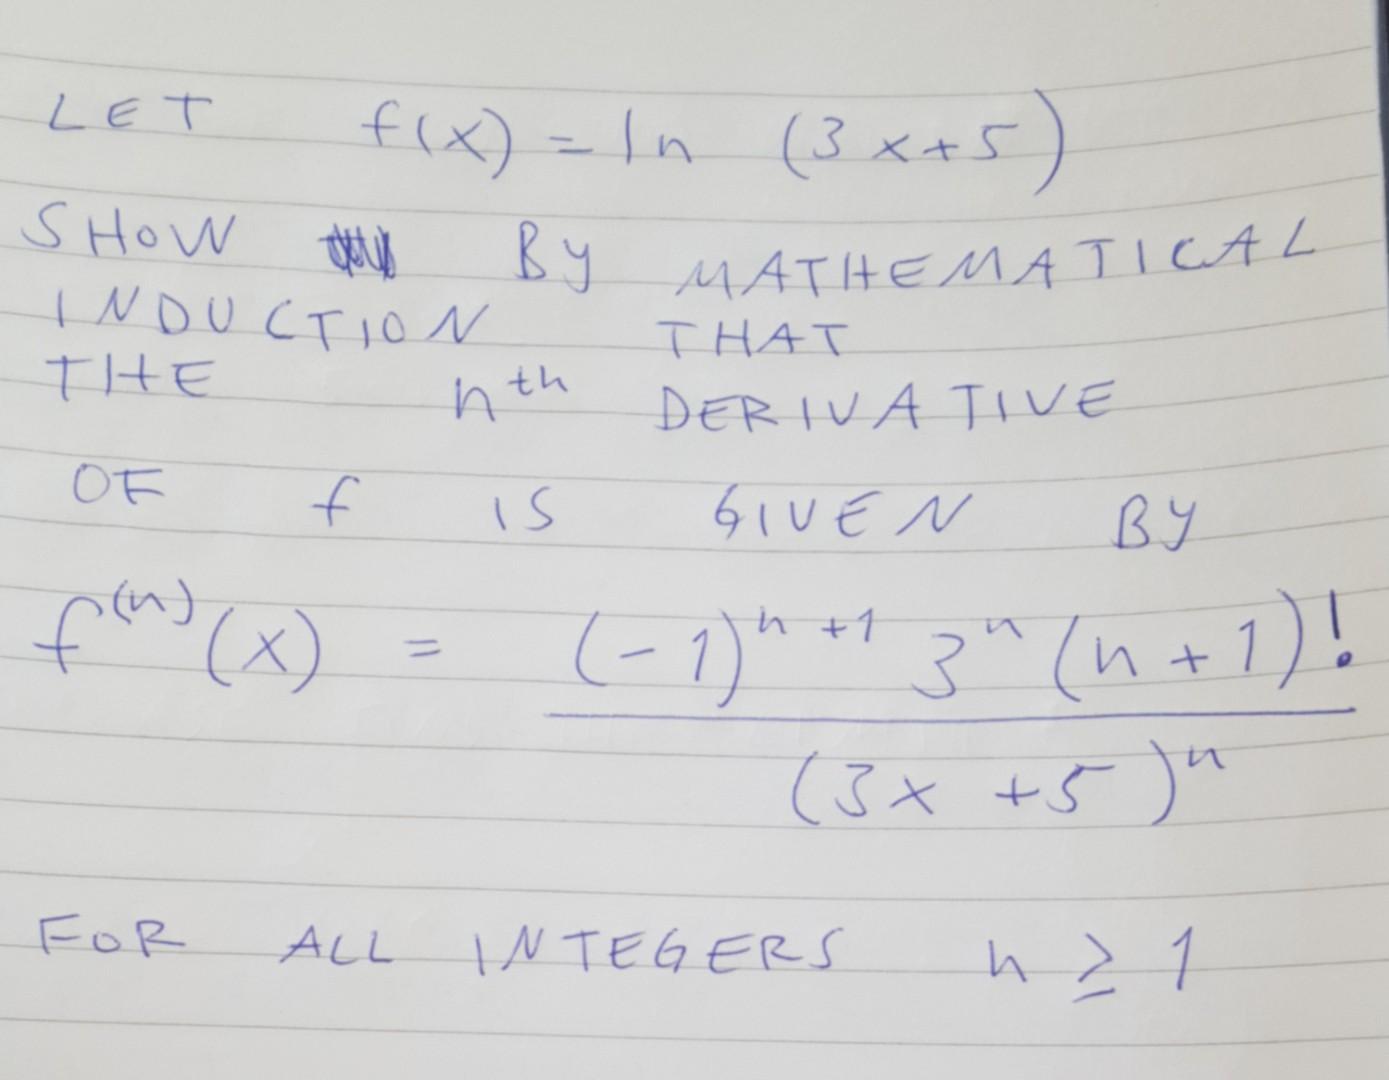 LET f(x) = ln (3x+5)
SHOW BY MATHEMATICAL
INDUCTION THAT
THE nth DERIVATIVE
OF f IS GIVEN BY
f^(n)(x) = (-1)^(n+1) 3^n (n+1)!
(3x+5)^n
FOR ALL INTEGERS n ≥ 1